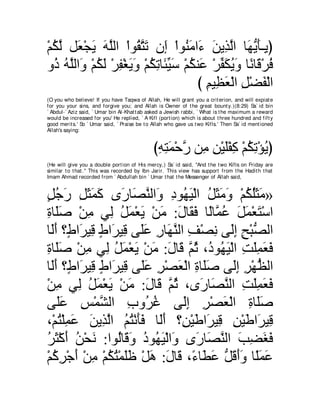 يِأَيُّهَا الَّذِينَ ءَامَنُواْ إَن تَتَّقُواْ اللَّهَ يَجْعَل لَّكُمْ
فُرْقَانًا وَيُكَفِّرْ عَنكُمْ سَيِّئَاتِكُمْ وَيَغْفِرْ لَكُمْ وَاللَّهُ ذُو
الْفَضْلِ الْعَظِيمِ )
(O you who believe! If you have Taqwa of Allah, He will grant you a criterion, and will expiate
for you your sins, and forgive you; and Allah is Owner of the great bounty.)(8:29) Sa`id bin
`Abdul-`Aziz said, "Umar bin Al-Khattab asked a Jewish rabbi, `What is the maximum a reward
would be increased for you' He replied, `A Kifl (portion) which is about three hundred and fifty
good merits.' So `Umar said, `Praise be to Allah who gave us two Kifls.' Then Sa`id mentioned
Allah's saying:
(يُؤْتِكُمْ كِفْلَيْنِ مِن رَّحْمَتِهِ)
(He will give you a double portion of His mercy,) Sa`id said, "And the two Kifls on Friday are
similar to that." This was recorded by Ibn Jarir. This view has support from the Hadith that
Imam Ahmad recorded from `Abdullah bin `Umar that the Messenger of Allah said,
«مَثَلُكُمْ وَمَثَلُ الْيَهُودِ وَالنَّصَارَى كَمَثَلِ رَجُلٍ
اسْتَعْمَلَ عُمَّالًا فَقَالَ: مَنْ يَعْمَلُ لِي مِنْ صَلَاةِ
الصُّبْحِ إِلَى نِصْفِ النَّهَارِ عَلَى قِيرَاطٍ قِيرَاطٍ؟ أَلَا
فَعَمِلَتِ الْيَهُودُ، ثُمَّ قَالَ: مَنْ يَعْمَلُ لِي مِنْ صَلَاةِ
الظُّهْرِ إِلَى صَلَاةِ الْعَصْرِ عَلَى قِيرَاطٍ قِيرَاطٍ؟ أَلَا
فَعَمِلَتِ النَّصَارَى، ثُمَّ قَالَ: مَنْ يَعْمَلُ لِي مِنْ
صَلَاةِ الْعَصْرِ إِلَى غُرُوبِ الشَّمْسِ عَلَى
قِيرَاطَيْنِ قِيرَاطَيْنِ؟ أَلَا فَأَنْتُمُ الَّذِينَ عَمِلْتُمْ،
فَغَضِبَ النَّصَارَى وَالْيَهُودُ وَقَالُوا: نَحْنُ أَكْثَرُ
عَمَلًا وَأَقَلُّ عَطَاءً، قَالَ: هَلْ ظَلَمْتُكُمْ مِنْ أَجْرِكُمْ